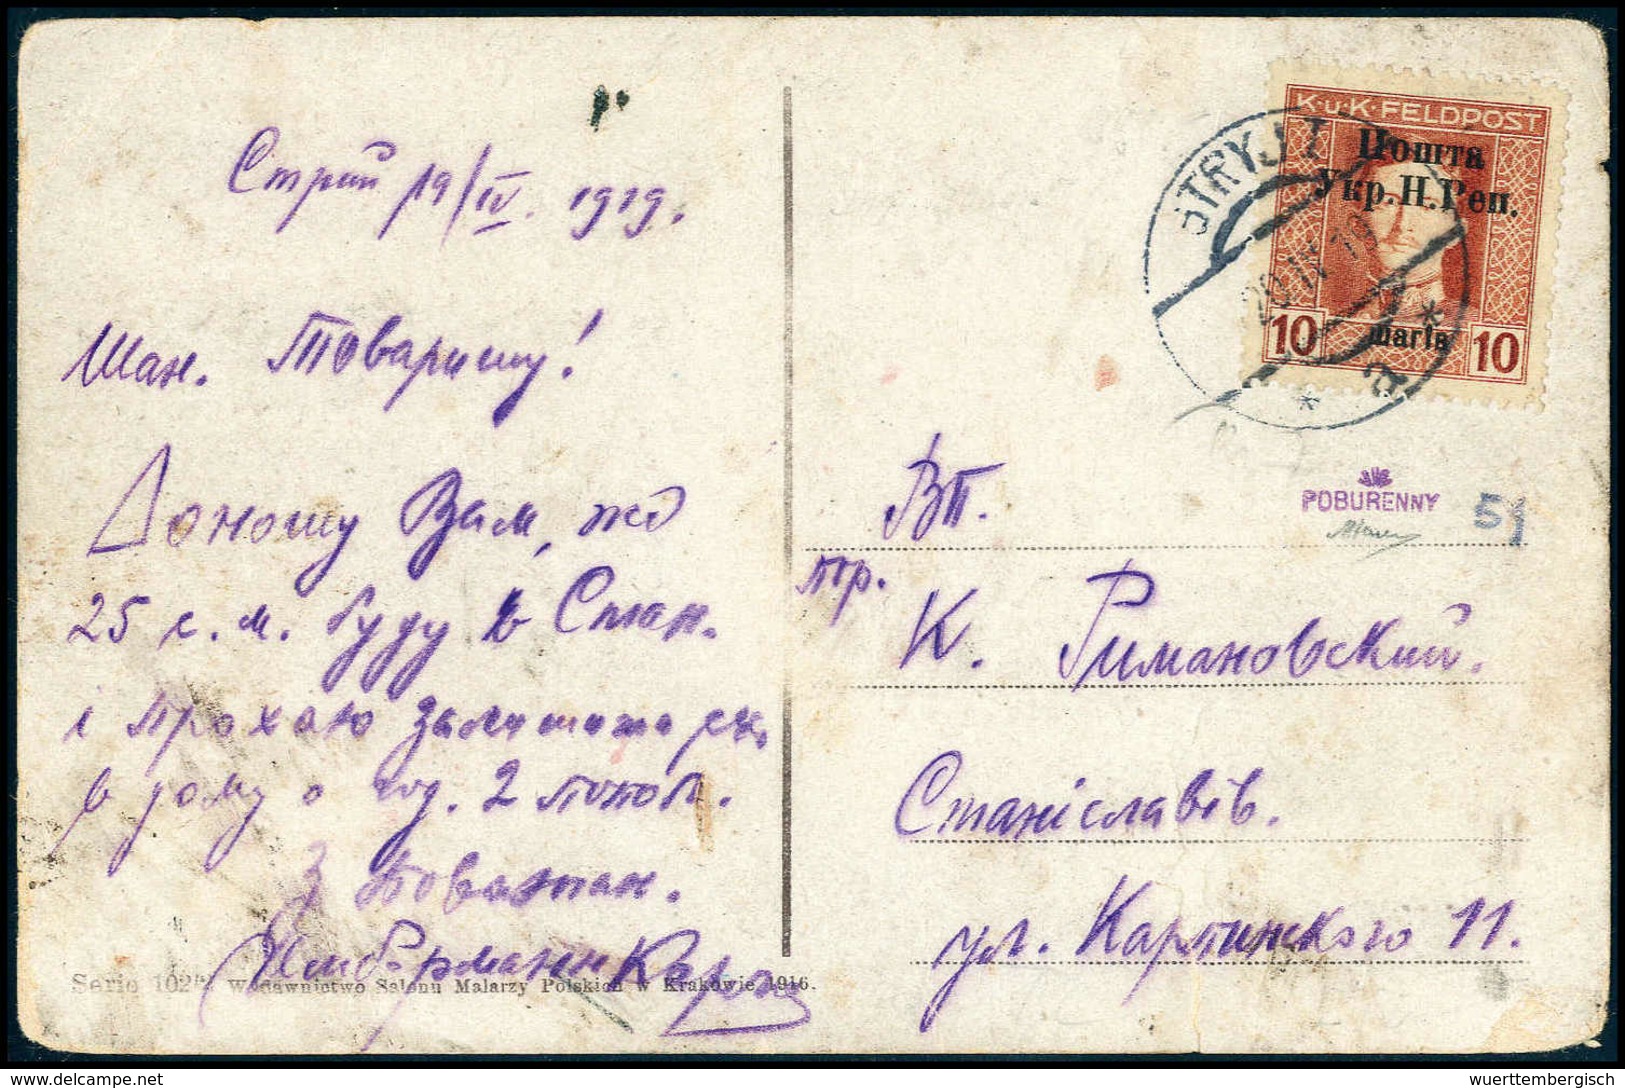 Стрий 19/IV. 1919.
Шан. Товаришу!
Доношу Вам, що
25 с.м. буду в Стан.
і прохаю залишити ся
в дому о год. 2 попол.
З поважан.
Карло
Serie 102 Wydawnictwo Salonu Malarzy Polskich w Krakowie 1916.
K.u.K. FELDPOST
Пошта
Укр.Н.Реп.
шагів
10 10
STRYJ 1
20 IV 19
* a *
POBURENNY
51
ВП.
тр.
К. Римановский.
Станіславів.
ул. Карпинского 11.
wuerttembergisch